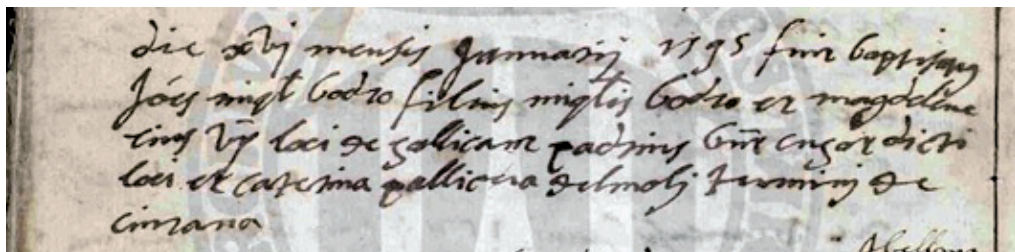 die xvj mensis Januarij 1595 fuit baptisatus
Joēs miql̄ bodro filius miql̄is bodro et magdalene
eius vx̄ loci de gallicant padrins bn̄t cugot dicti
loci et caterina pallicera del molj terminj de
ciurana